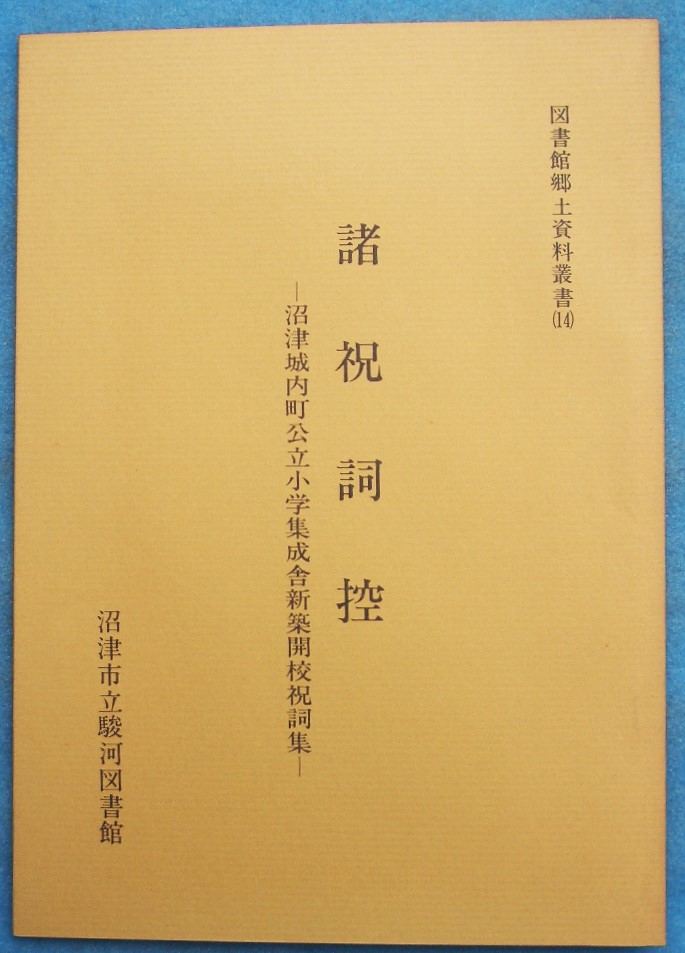 図書館郷土資料叢書(14)
諸祝詞控
―沼津城内町公立小学集成舎新築開校祝詞集―
沼津市立駿河図書館